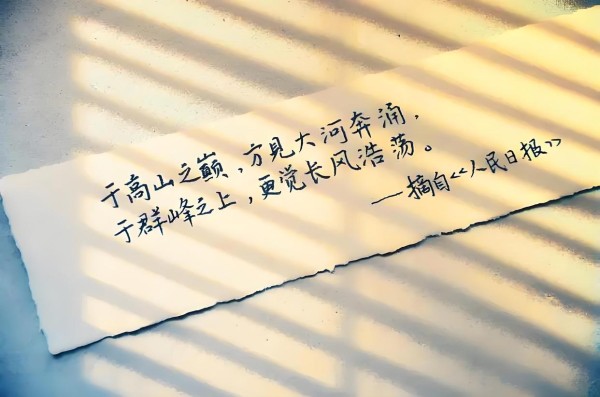 于高山之巅，方見大河奔涌，
于群峰之上，更觉长风浩荡。
——摘自《人民日报》